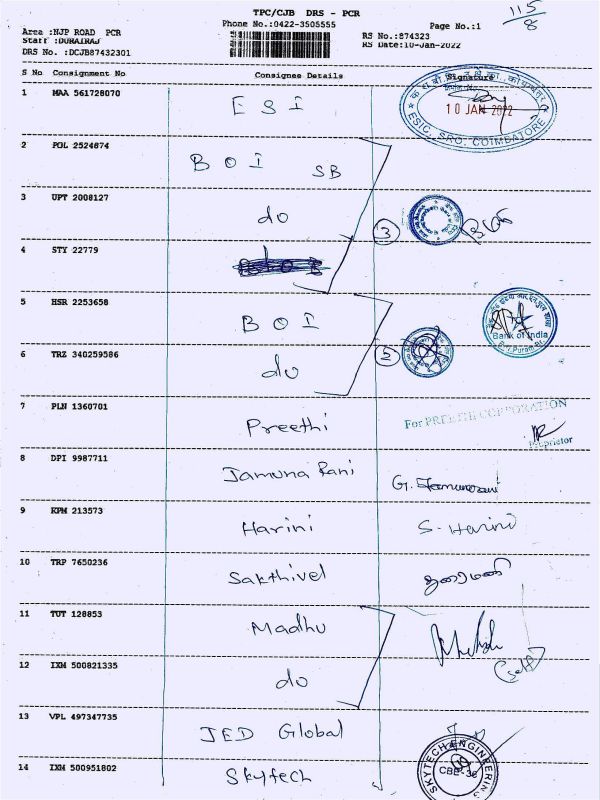 TPC/CJB DRS - PCR
115/8
Phone No.:0422-3505555
Page No.:1
Area :NJP ROAD PCR
RS No.:874323
Staff :DURAIRAJ
RS Date:10-Jan-2022
DRS No. :DCJB87432301
S No Consignment No Consignee Details Signature
1 MAA 561728070 ESI
10 JAN 2022
ESIC, SRO, COIMBATORE
2 POL 2524874 BOI SB
3 UPT 2008127 do 3
4 STY 22779
5 HSR 2253658 BOI
Bank of India
6 TRZ 340259586 do 2
7 PLN 1360701 Preethi
For PREETHI CORPORATION
Proprietor
8 DPI 9987711 Jamuna Rani G. Jamunarani
9 KPM 213573 Harini S. Harini
10 TRP 7650236 Sakthivel
11 TUT 128853 Madhu
(self)
12 IXM 500821335 do
13 VPL 497347735 JED Global
14 IXM 500951802 Skytech
SKYTECH ENGINEERING
CBE-36